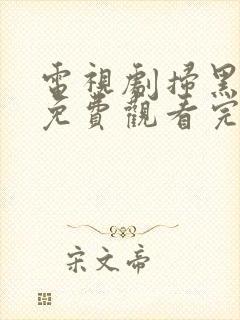 電視劇掃黑
免費觀看完
宋文帝